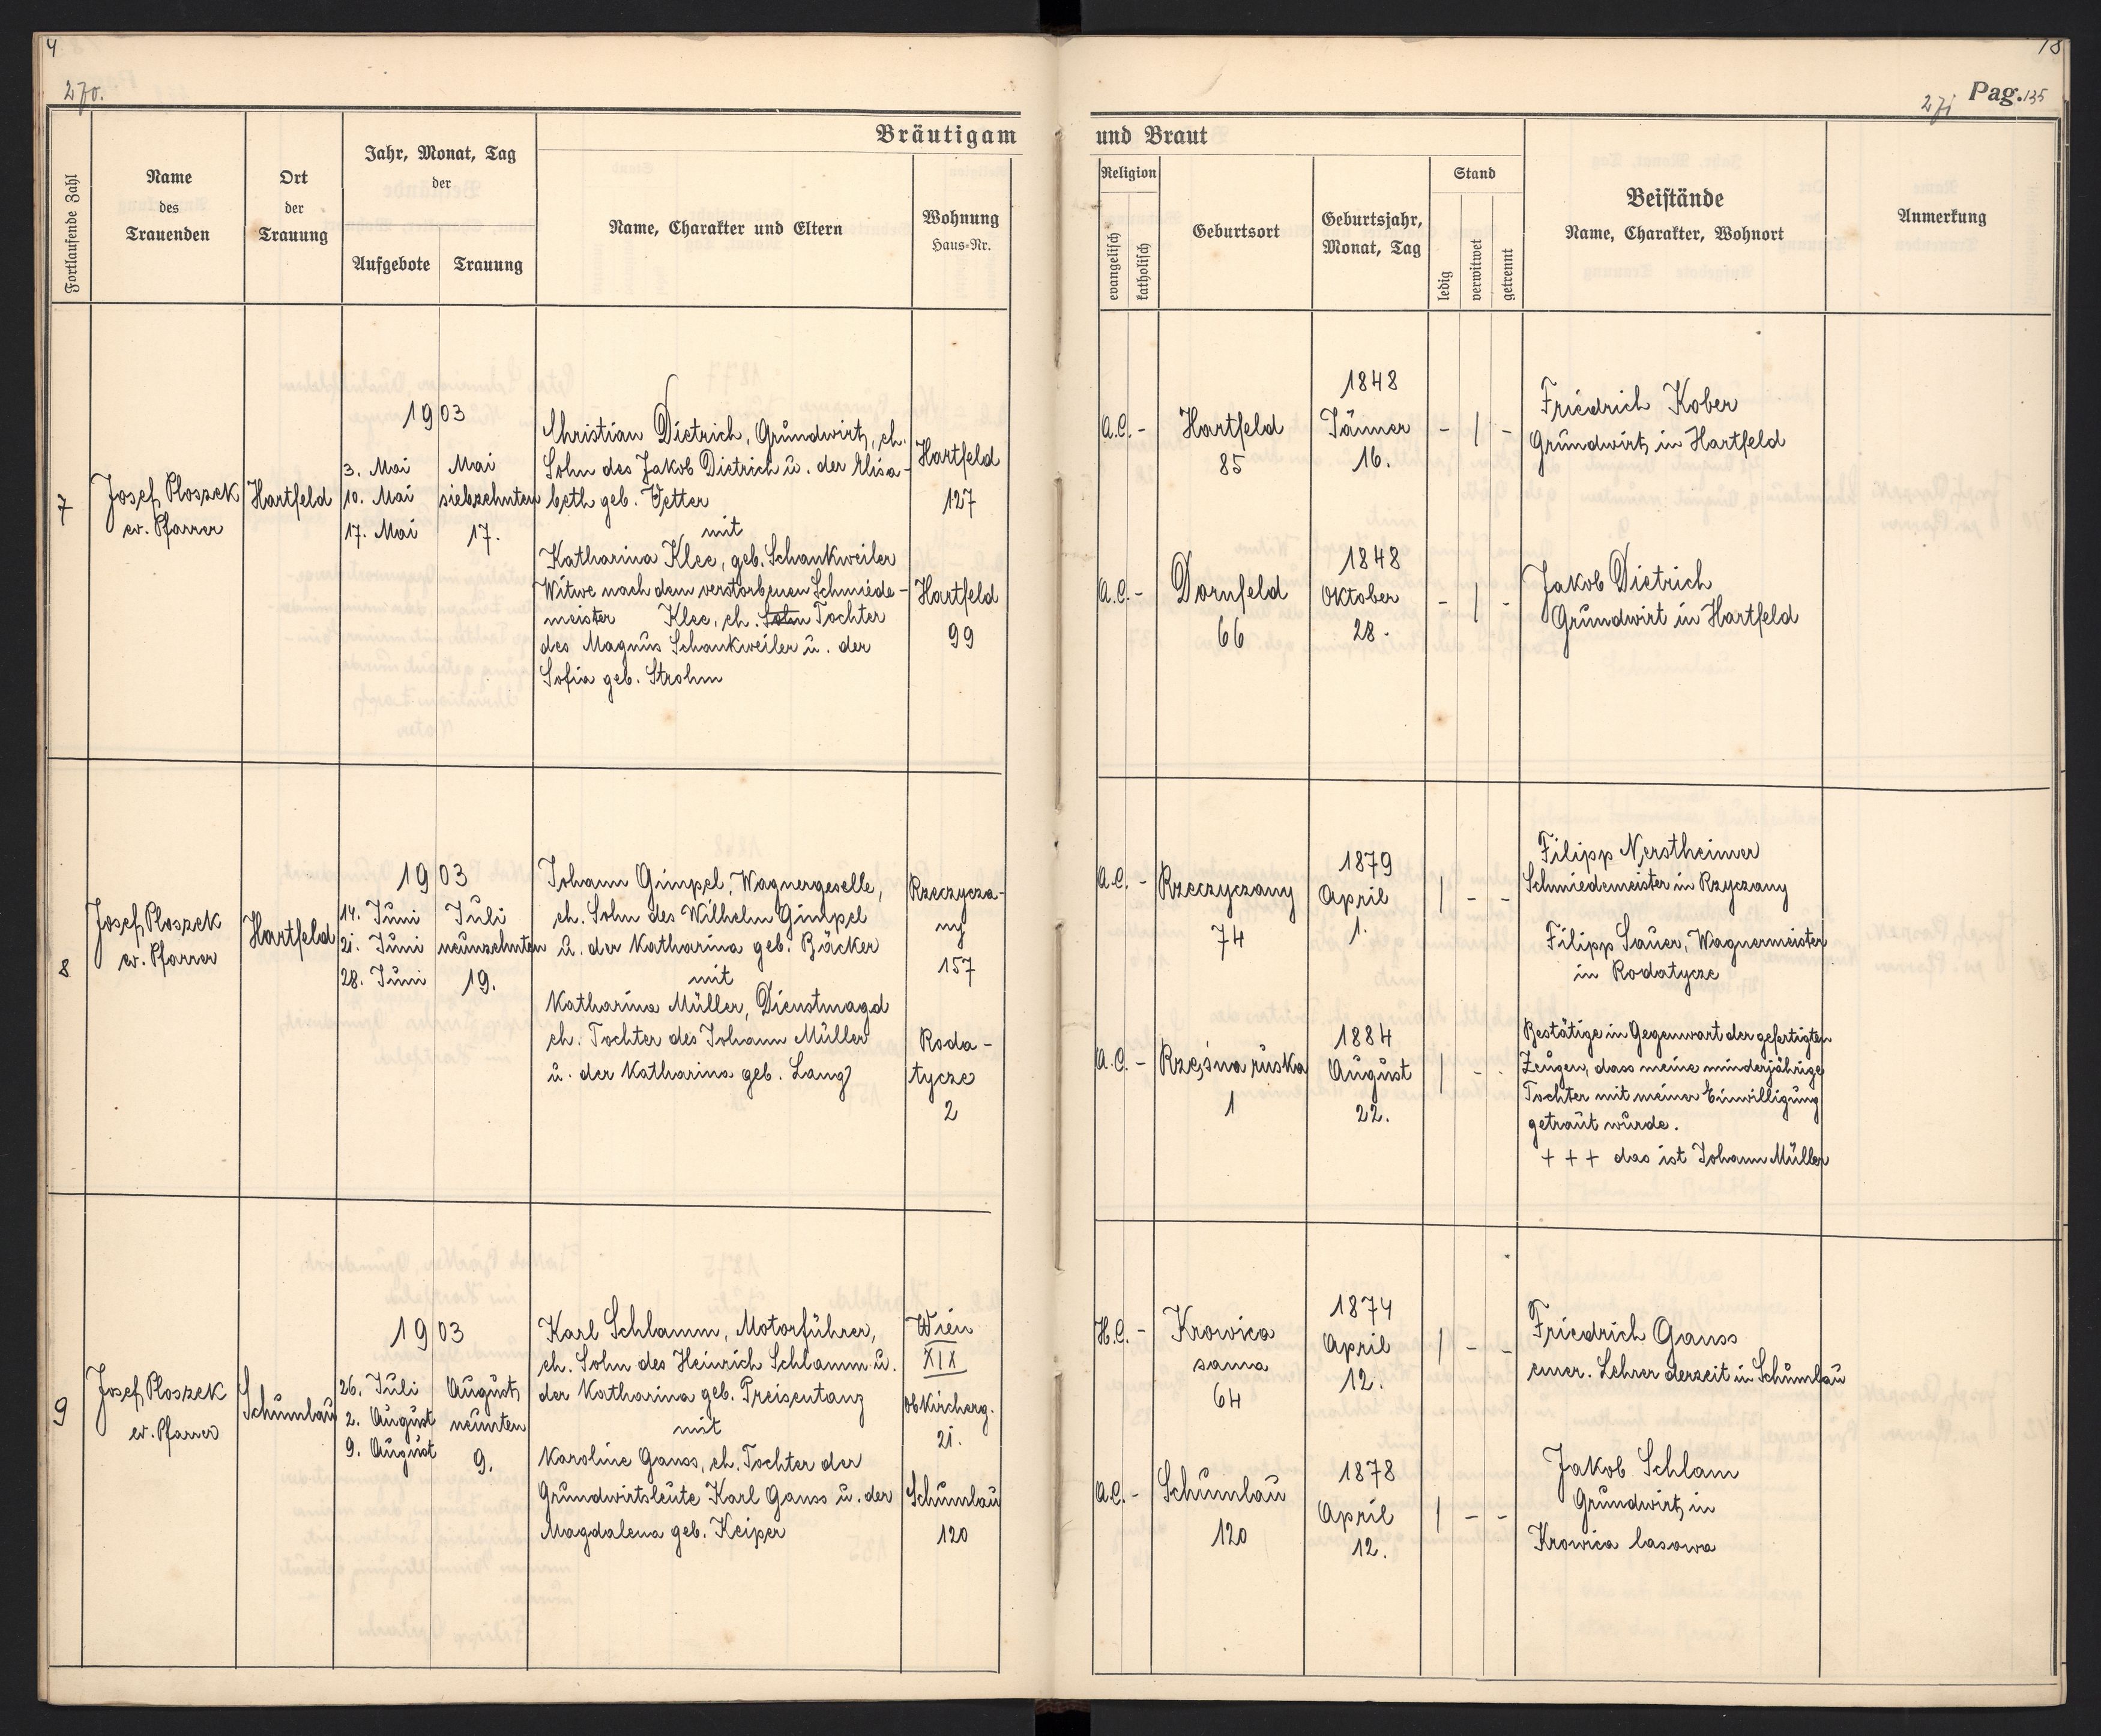 4
18
270.
271
Pag. 135
Fortlaufende Zahl
Name
des
Trauenden
Ort
der
Trauung
Jahr, Monat, Tag
der
Aufgebote
Trauung
Bräutigam
Name, Charakter und Eltern
Wohnung
Haus-Nr.
und Braut
Religion
evangelisch
katholisch
Geburtsort
Geburtsjahr,
Monat, Tag
Stand
ledig
verwitwet
getrennt
Beistände
Name, Charakter, Wohnort
Anmerkung
7
Josef Ploszek
ev. Pfarrer
Hartfeld
1903
3. Mai
10. Mai
17. Mai
Mai
siebzehnten
17.
Christian Dietrich, Grundwirt, eh.
Sohn des Jakob Dietrich u. der Elisa-
beth geb. Vetter
mit
Katharina Klee, geb. Schankweiler
Witwe nach dem verstorbenen Schmiede-
meister Klee, eh. Sohn Tochter
des Magnus Schankweiler u. der
Sofia geb. Strohm
Hartfeld
127
Hartfeld
99
A.C. -
Hartfeld
85
1848
Jänner
16.
- | -
Friedrich Kober
Grundwirt in Hartfeld
A.C. -
Dornfeld
66
1848
Oktober
28.
- | -
Jakob Dietrich
Grundwirt in Hartfeld
8
Josef Ploszek
ev. Pfarrer
Hartfeld
1903
14. Juni
21. Juni
28. Juni
Juli
neunzehnten
19.
Johann Gimpel, Wagnergeselle,
eh. Sohn des Wilhelm Gimpel
u. der Katharina geb. Bäcker
mit
Katharina Müller, Dienstmagd
eh. Tochter des Johann Müller
u. der Katharina geb. Lang
Rzeczycza-
ny
157
Roda-
tycze
2
A.C. -
Rzeczyczany
74
1879
April
1.
| - -
Filipp Nerstheimer
Schmiedemeister in Rzyczany
Filipp Sauer, Wagnermeister
in Rodatycze
A.C. -
Rzęśna ruska
1
1884
August
22.
| - -
Bestätige in Gegenwart der gefertigten
Zeugen, dass meine minderjährige
Tochter mit meiner Einwilligung
getraut wurde.
+ + + das ist Johann Müller
9
Josef Ploszek
ev. Pfarrer
Schumlau
1903
26. Juli
2. August
9. August
August
neunten
9.
Karl Schlamm, Motorführer,
eh. Sohn des Heinrich Schlamm u.
der Katharina geb. Preisentanz
mit
Karoline Gauss, eh. Tochter der
Grundwirtsleute Karl Gauss u. der
Magdalena geb. Keiper
Wien
XIX
Obkircherg.
21.
Schumlau
120
H.C. -
Krowica
sama
64
1874
April
12.
| - -
Friedrich Gauss
emer. Lehrer derzeit in Schumlau
A.C. -
Schumlau
120
1878
April
12.
| - -
Jakob Schlam
Grundwirt in
Krowica lasowa